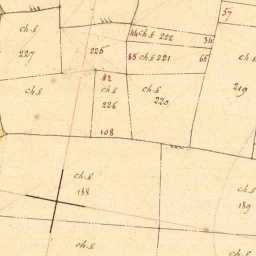 57
ch.s
227
225
114 ch.s 222 36
65 ch.s 221 65
ch.s
219
82
ch.s
226
ch.s
220
108
ch.s
188
ch.s
189
ch.s
ch.s